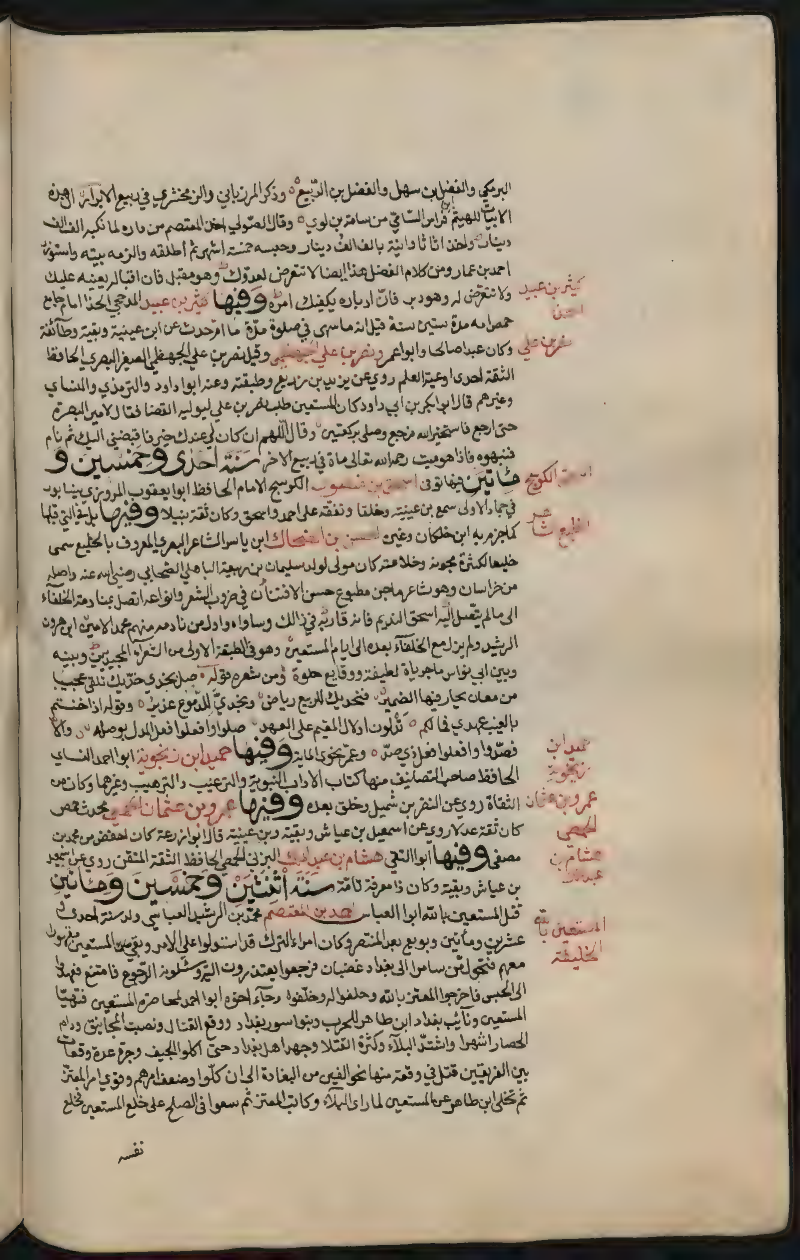 البرمكي والفضل بن سهل والفضل بن الربيع وذكر المرزباني والزمخشري في ربيع الابرار ان هذه
الابيات للهيثم بن فراس السامي من سامة بن لوي وقال الصولي اخذ المعتصم من داره لما نكبه الف الف
دينار واخذ اثاثا وانية بالف الف دينار وحبسه خمسة اشهر ثم اطلقه والزمه بيته واستوزر
احمد بن عمار ومن كلام الفضل هذا ايضا لا تتعرض لعدوك وهو مقبل فان اقباله يعينه عليك
ولا تتعرض له وهو مدبر فان ادباره يكفيك امره وفيها كثير بن عبيد المذحجي الحذا امام جامع
حمص امه مدة ستين سنة قيل انه ما سهى في صلوة مدة ما ام حدث عن ابن عيينة وبقية وطائفة
وكان عبدا صالحا وابو عمرو نصر بن علي الجهضمي وقيل نصر بن علي الجهضمي الصغير البصري الحافظ
الثقة احد اوعية العلم روى عن يزيد بن زريع وطبقته وعنه ابو داود والترمذي والنساي
وغيرهم قال ابو بكر بن ابي داود كان المستعين طلب نصر بن علي ليوليه القضا فقال لامير البصرة
حتى ارجع فاستخير الله فرجع وصلى ركعتين وقال اللهم ان كان لي عندك خير فاقبضني اليك ثم نام
فنبهوه فاذا هو ميت رحمه الله تعالى مات في ربيع الاخر سنة احدى وخمسين و
مائتين فيها توفي اسحق بن منصور الكوسج الامام الحافظ ابو يعقوب المروزي بنيسابور
في جماد الاولى سمع بن عيينة وخلقا وتفقه على احمد واسحق وكان ثقة نبيلا وفيها بل في التي قبلها
كما جزم به ابن خلكان وغيره الحسن بن الضحاك ابن ياسر الشاعر البصري المعروف بالخليع سمى
خليعا لكثرة مجونه وخلاعته كان مولى لولد سليمان بن ربيعة الباهلي الصحابي رضي الله عنه واصله
من خراسان وهو شاعر ماجن مطبوع حسن الافتنان في ضروب الشعر وانواعه اتصل بمنادمة الخلفاء
الى ما لم يتصل اليه اسحق النديم فانه قاربه في ذالك وساواه واول من نادمه منهم محمد الامين ابن هرون
الرشيد ولم يزل مع الخلفاء بعده الى ايام المستعين وهو في الطبقة الاولى من الشعراء المجيدين وبينه
وبين ابي نواس ماجريات لطيفة ووقايع حلوة ومن شعره قوله صل بخدي خديك تلق عجيبا
من معان يحار فيها الضمير فبخديك للربيع رياض وبخدي للدموع غدير وقوله اذا خنتم
بالغيب عهدي فما لكم تدلون ادلال المقيم على العهد صلوا وافعلوا فعل المدل بوصله والا
فصدوا وافعلوا فعل ذي صد وعمر نحو الماية وفيها حميد ابن زنجوية ابو احمد النساي
الحافظ صاحب التصانيف منها كتاب الاداب النبوية والترغيب والترهيب وغيرها وكان من
الثقاة روى عن النضر بن شميل وخلق بعده وفيها عمرو بن عثمان الحمصي محدث حمص
كان ثقة عدلا روى عن اسمعيل بن عياش وبقية وبن عيينة قال ابو زرعة كان احفظ من محمد بن
مصفى وفيها ابو التقي هشام بن عبد الملك اليزني الحمصي الحافظ الثقة المتقن روى عن اسمعيل
بن عياش وبقية وكان ذا معرفة تامة سنة اثنتين وخمسين ومائتين
قتل المستعين بالله ابو العباس احمد بن المعتصم محمد بن الرشيد العباسي ولد سنة احدى و
عشرين ومأتين وبويع بعد المنتصر وكان امراء الترك قد استولوا على الامر وبقي المستعين مقهورا
معهم فتحول من سامرا الى بغداد غضبان فوجهوا يعتذرون اليه ويسئلونه الرجوع فامتنع فعمدوا
الى الحبس فاخرجوا المعتز بالله وحلفوا له وخلعوا وجاء اخوه ابو احمد لمحاصرة المستعين فتهيا
المستعين ونائب بغداد ابن طاهر للحرب وبنوا سور بغداد ووقع القتال ونصبت المجانيق ودام
الحصار اشهرا واشتد البلاء وكثرة القتلا وجهد اهل بغداد حتى اكلوا الجيف وجرت عدة وقعات
بين الفريقين قتل في وقعة منها نحو الفين من البغادة الى ان كلوا وضعف امرهم وقوي امر المعتز
ثم تخلى ابن طاهر عن المستعين لما راى البلاء وكاتب المعتز ثم سعوا في الصلح على خلع المستعين فخلع
نفسه
كثير بن عبيد
نصر بن علي
الكوسج
الخليع
حميد ابن
زنجوية
عمرو بن عثمان
الحمصي
هشام بن
عبد الملك
المستعين بالله
الخليفة